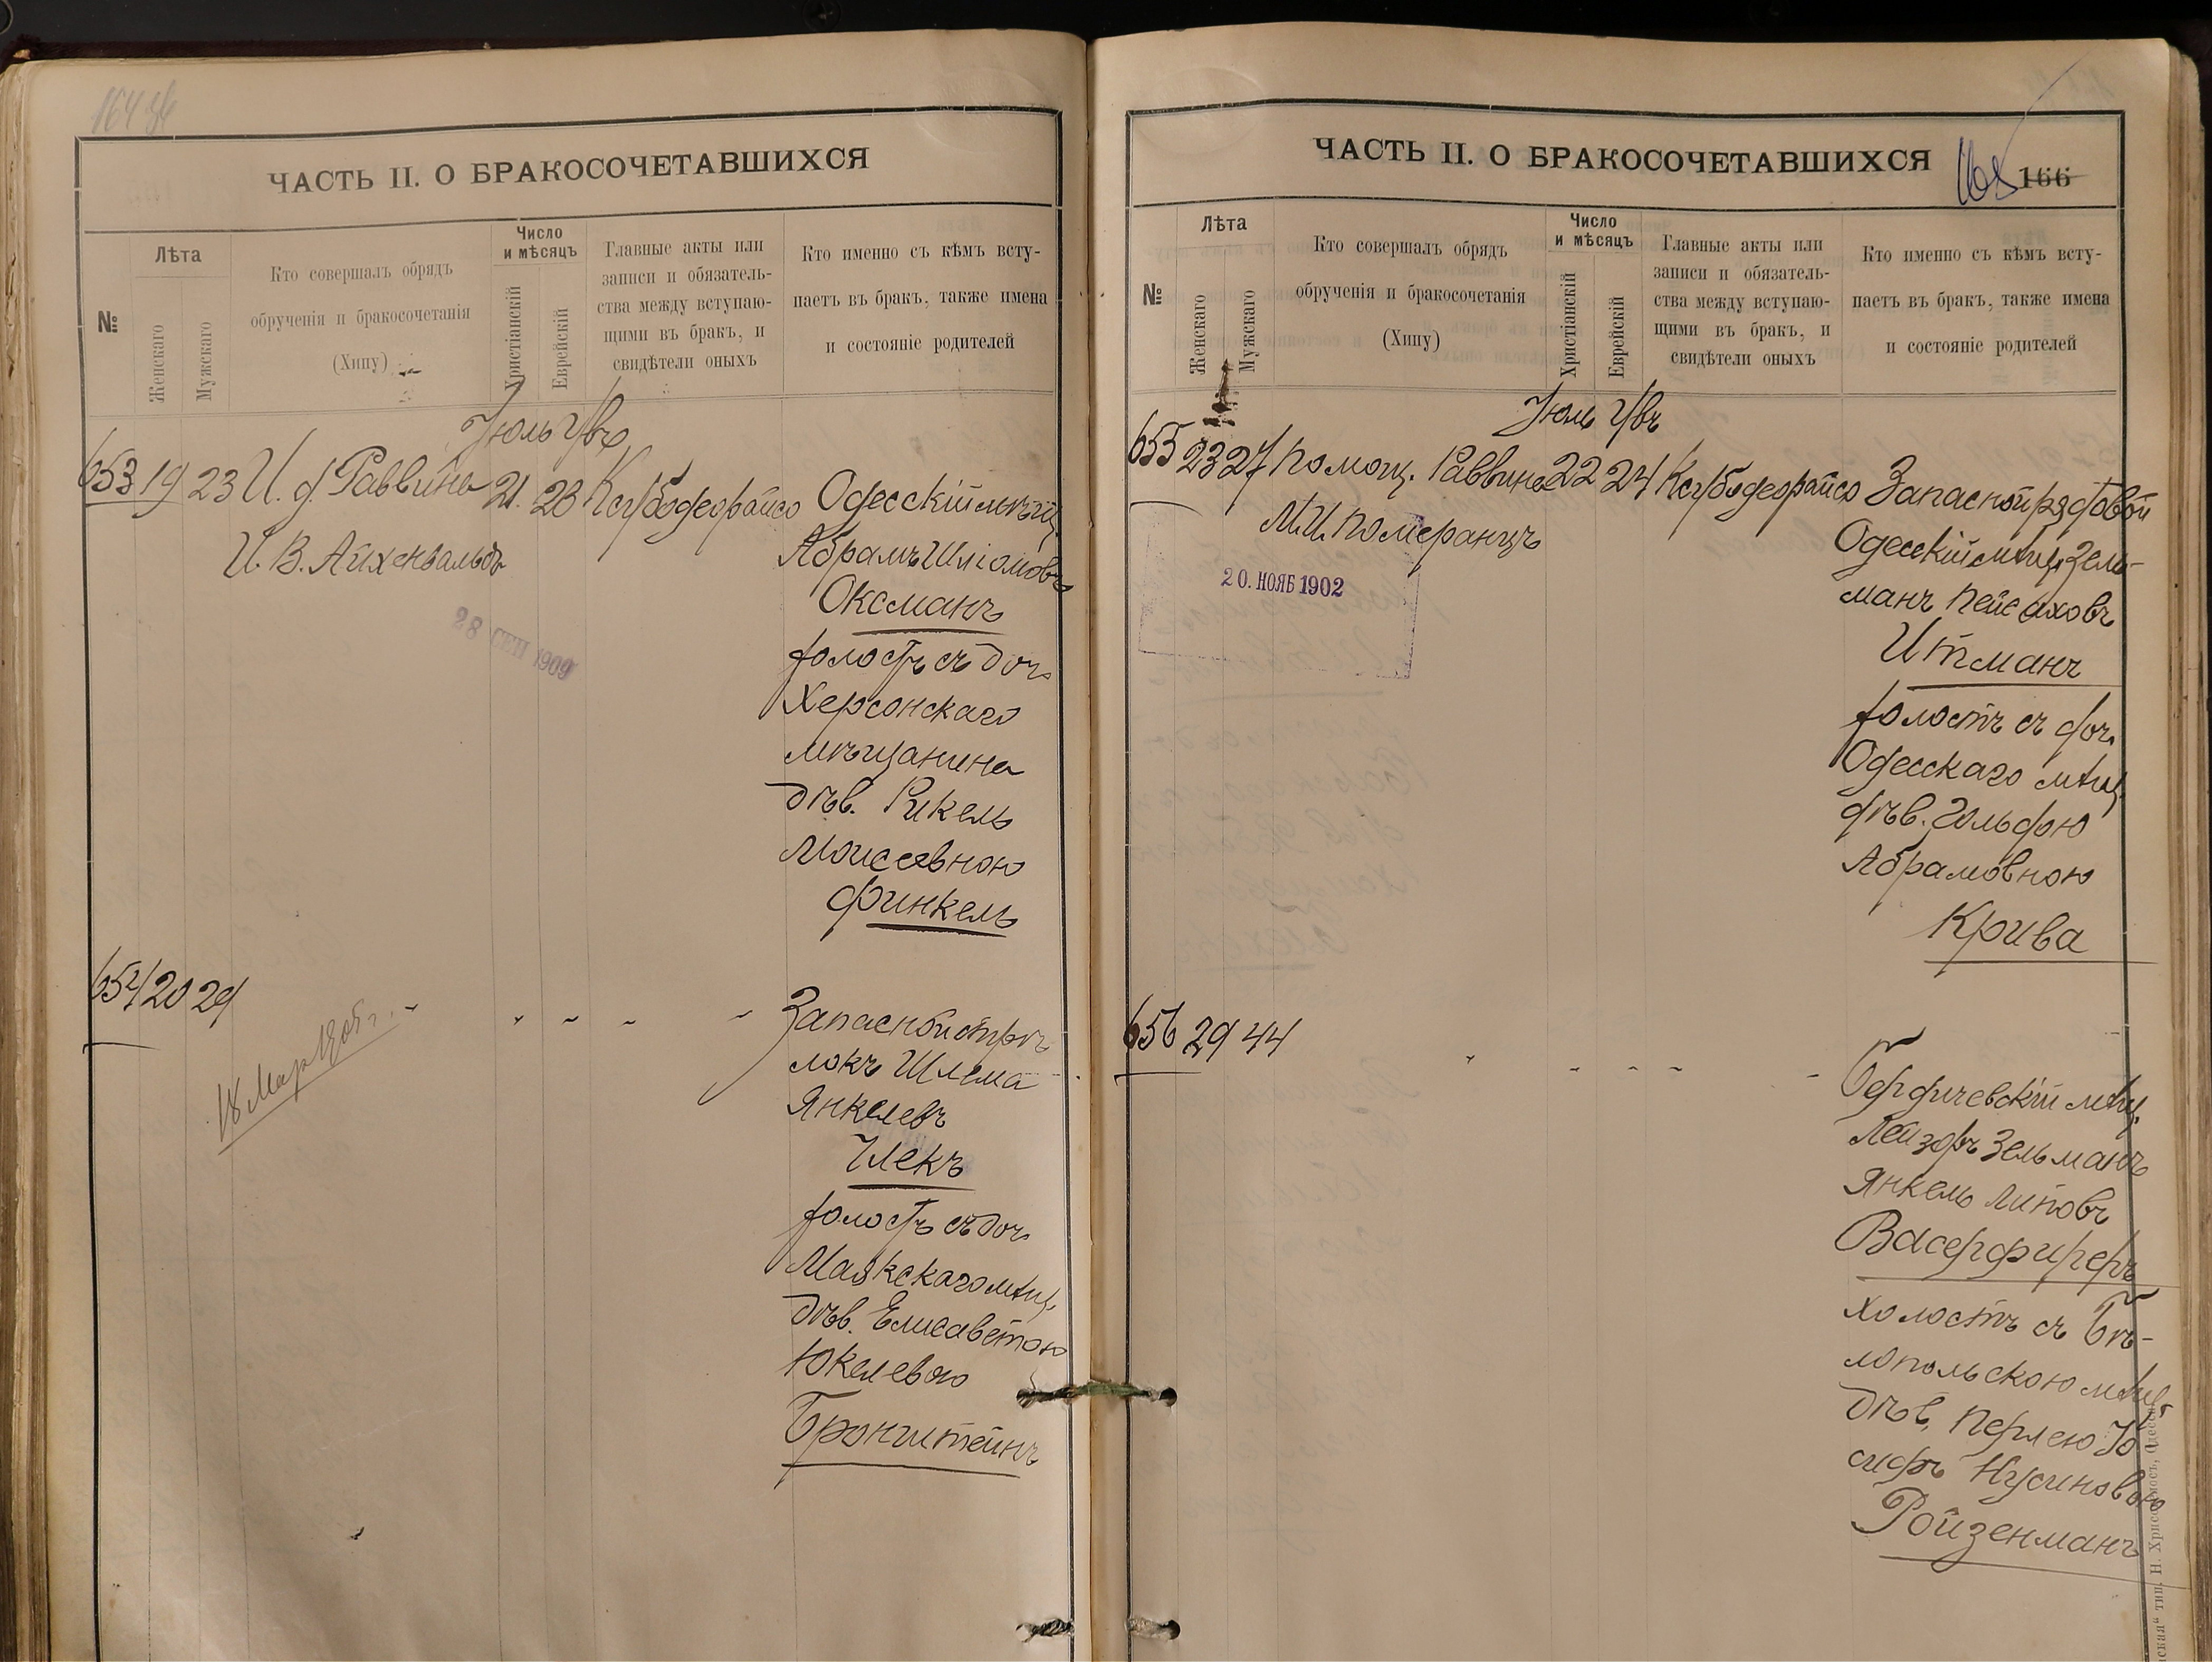 ЧАСТЬ II. О БРАКОСОЧЕТАВШИХСЯ
№
Лѣта
Женскаго
Мужскаго
Кто совершалъ обрядъ
обрученія и бракосочетанія
(Хипу)
Число
и мѣсяцъ
Христіанскій
Еврейскій
Главные акты или
записи и обязатель-
ства между вступаю-
щими въ бракъ, и
свидѣтели оныхъ
Кто именно съ кѣмъ всту-
паетъ въ бракъ, также имена
и состояніе родителей
Іюль
653 19 23 И. д. Раввина 21. 28 Ксубодеорайсо Одесскій мѣщ.
И. В. Айхенвальдъ
Абрамъ Шліомовъ
Оксманъ
28 СЕН 1909
холостъ съ доч.
Херсонскаго
мѣщанина
дѣв. Рикель
Моисеевною
Финкель
654 20 29
18 Мар 1905 г.
Запасной стрѣ-
локъ Шлема
Янкелевъ
Улекъ
холостъ съ доч.
Маякскаго мѣщ.
дѣв. Елисаветою
Юкелевою
Бронштейнъ
ЧАСТЬ II. О БРАКОСОЧЕТАВШИХСЯ
165 166
№
Лѣта
Женскаго
Мужскаго
Кто совершалъ обрядъ
обрученія и бракосочетанія
(Хипу)
Число
и мѣсяцъ
Христіанскій
Еврейскій
Главные акты или
записи и обязатель-
ства между вступаю-
щими въ бракъ, и
свидѣтели оныхъ
Кто именно съ кѣмъ всту-
паетъ въ бракъ, также имена
и состояніе родителей
Іюль
655 23 27 Помощ. Раввина 22 24 Ксубодеорайсо Запасной рядовой
М. И. Померанцъ
20. НОЯБ 1902
Одесскій мѣщ. Зель-
манъ Пейсаховъ
Итманъ
холостъ съ доч.
Одесскаго мѣщ.
дѣв. Гольдою
Абрамовною
Крива
656 29 44
Бердичевскій мѣщ.
Лейзоръ Зельманъ
Янкель Липовъ
Васерфиреръ
холостъ съ Бѣ-
лопольскою мѣщ.
дѣв. Перлею Іо
сифъ Нусиновою
Ройзенманъ
тип. Н. Хрисогелосъ, Одесса